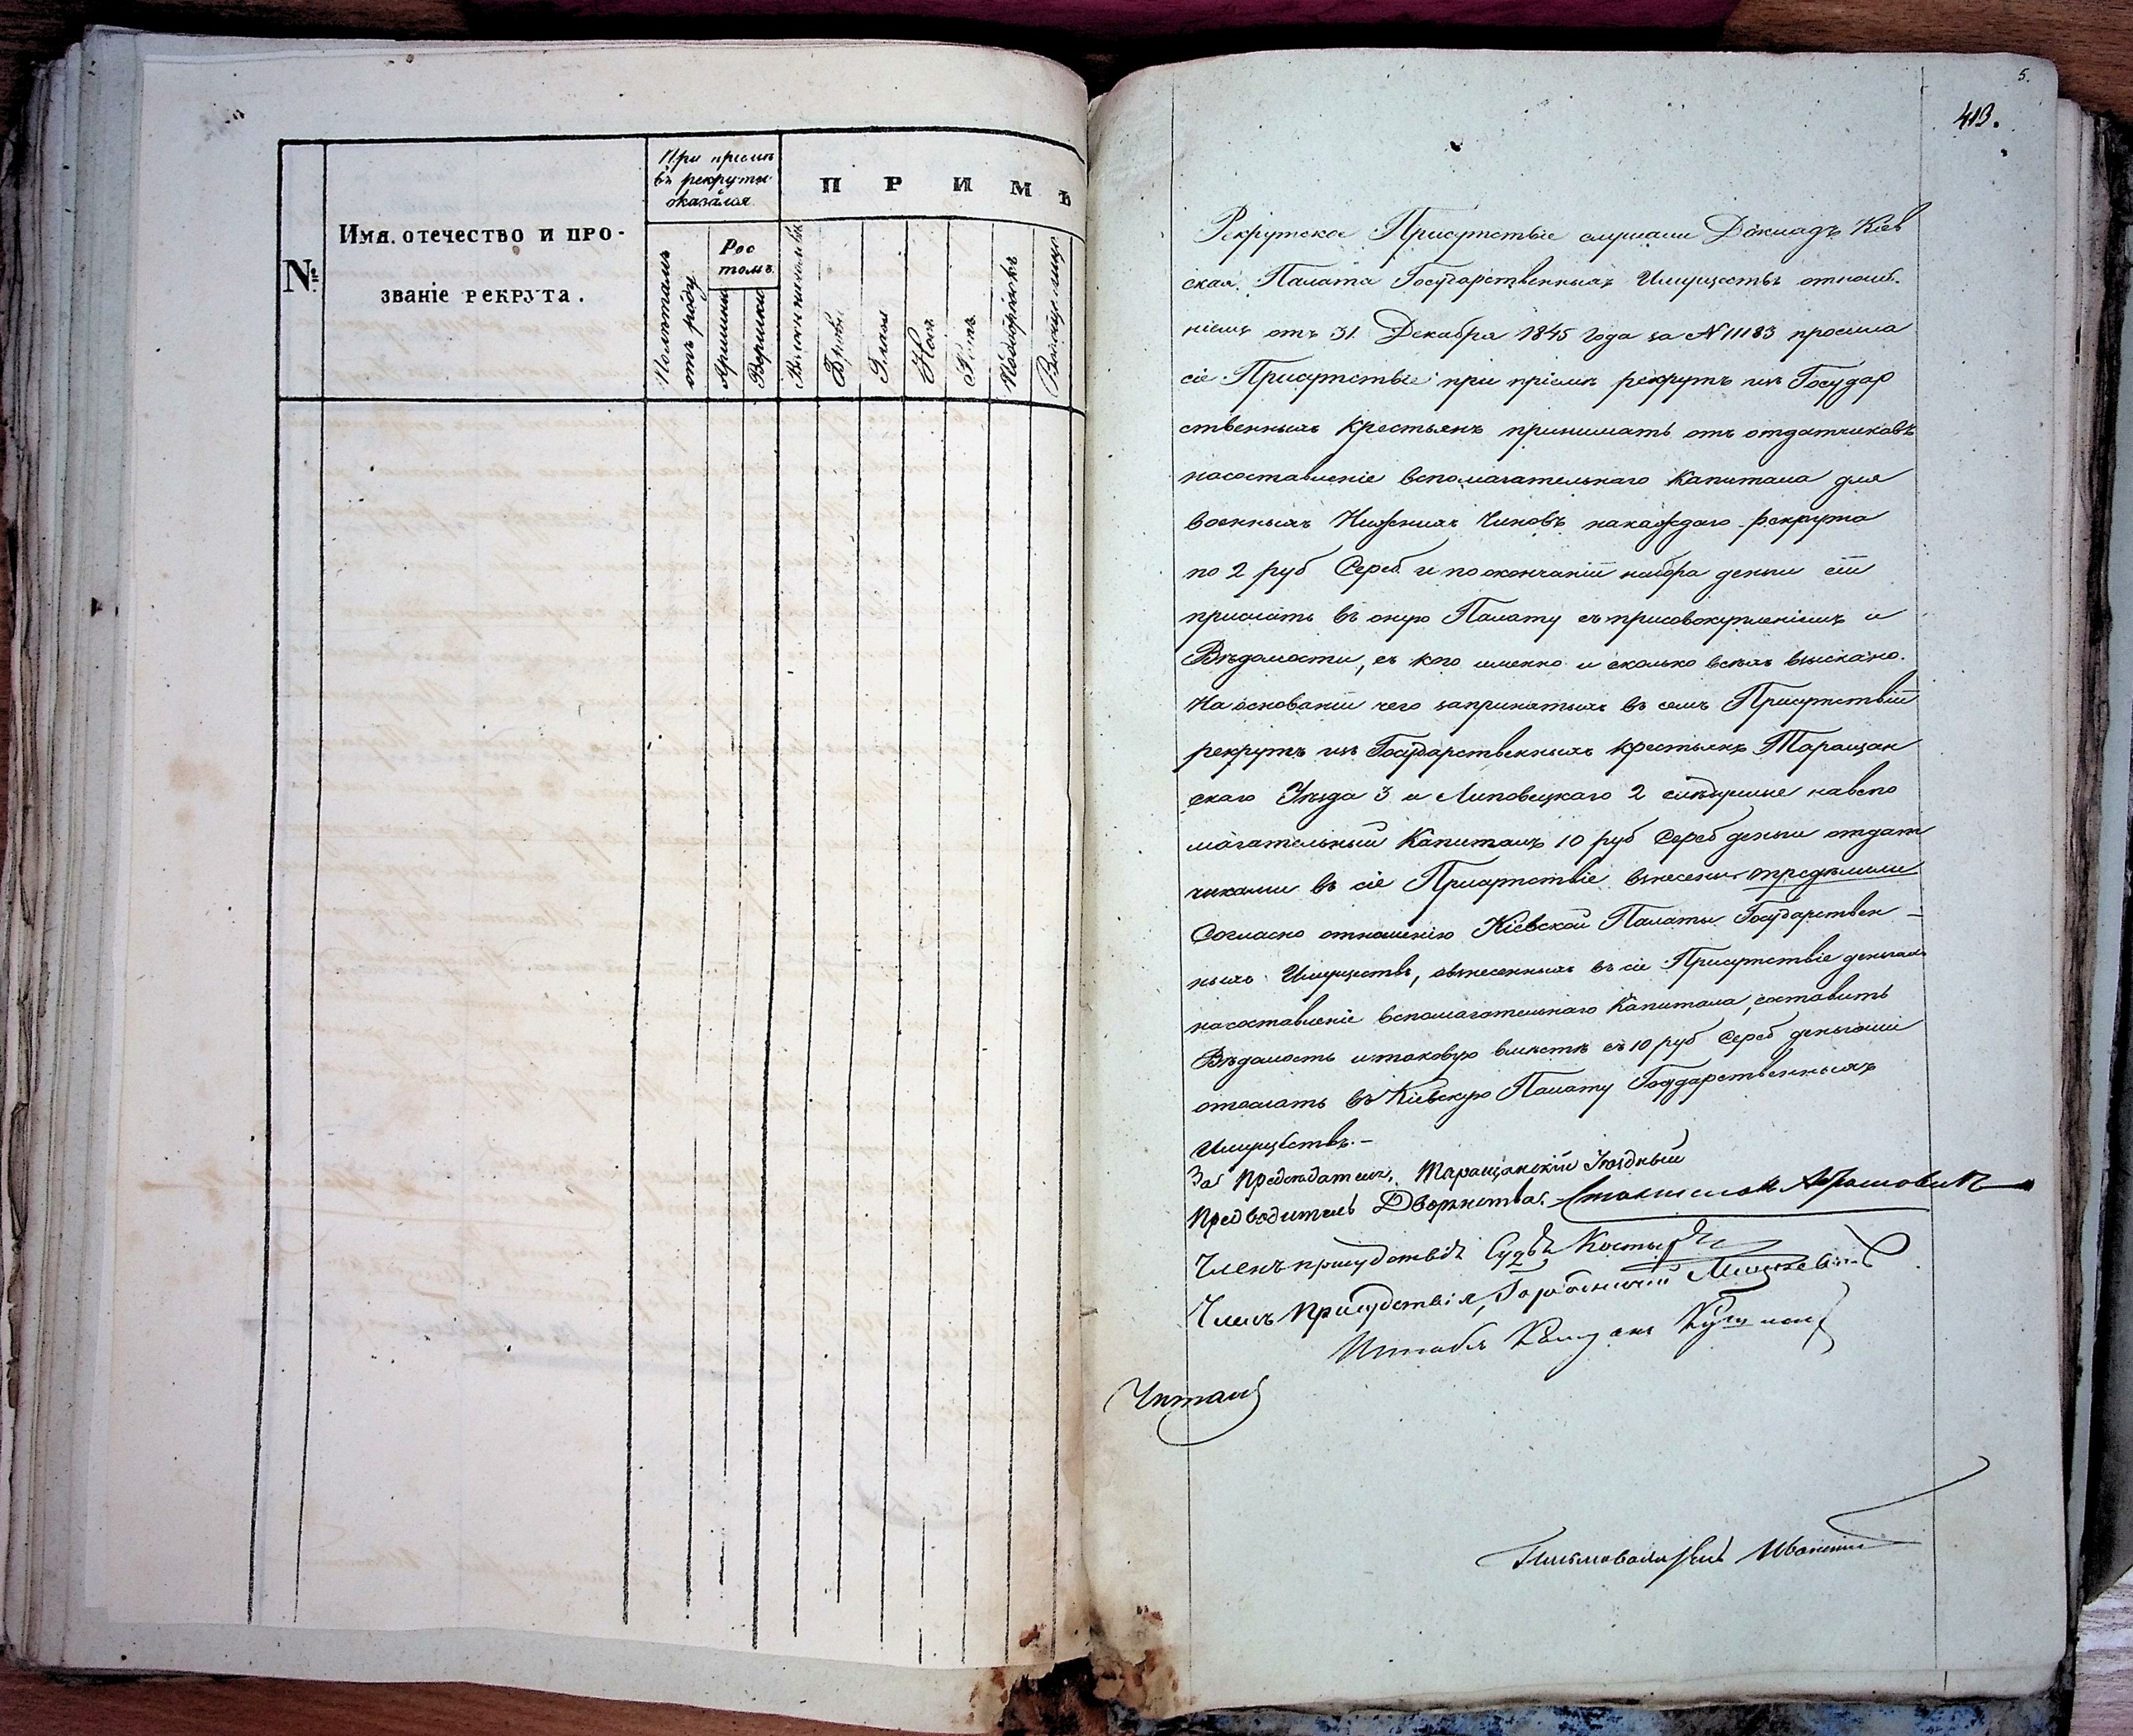 №
Имя, отечество и про-
званіе рекрута.
При пріемѣ
въ рекруты
оказался
Сколькихъ лѣтъ
отъ роду
Рос
томъ
Аршинъ
Вершковъ
П Р И М Ѣ
Волосы на головѣ
Брови
Глаза
Носъ
Ротъ
Подбородокъ
Вообще лицо
5.
413.
Рекрутское Присутствіе слушали Докладъ Кіев
ская Палата Государственныхъ Имуществъ отноше-
ніемъ отъ 31 Декабря 1845 года за № 11183 просила
сіе Присутствіе при пріемѣ рекрутъ изъ Государ
ственныхъ крестьянъ принимать отъ отдатчиковъ
насоставленіе вспомагательнаго Капитала для
военныхъ Нижнихъ Чиновъ накаждаго рекрута
по 2 руб Сереб и поокончаніи набора деньги сіи
прислать въ оную Палату съ присовокупленіемъ и
Вѣдомости, съ кого именно и сколько всѣхъ взыскано.
На основаніи чего запринятыхъ въ семъ Присутствіи
рекрутъ изъ Государственныхъ крестьянъ Таращан
скаго Уѣзда 3 и Липовецкаго 2 слѣдуемые навспо
магательный Капиталъ 10 руб Сереб деньги отдат
чиками въ сіе Присутствіе взнесены опредѣлили
Согласно отношенію Кіевской Палаты Государствен-
ныхъ Имуществъ, овзнесенныхъ въ сіе Присутствіе деньгахъ
насоставленіе вспомагательнаго Капитала, составить
Вѣдомость итаковую вместѣ съ 10 руб Сереб деньгами
отослать въ Кіевскую Палату Государственныхъ
Имуществъ.-
За Предсѣдателя, Таращанскій Уѣздный
Предводитель Дворянства Станиславъ Абрамовичъ
Членъ присудствія Судья
Членъ Присудствія, Городничій
Штабъ
Читалъ
Письмоводитель